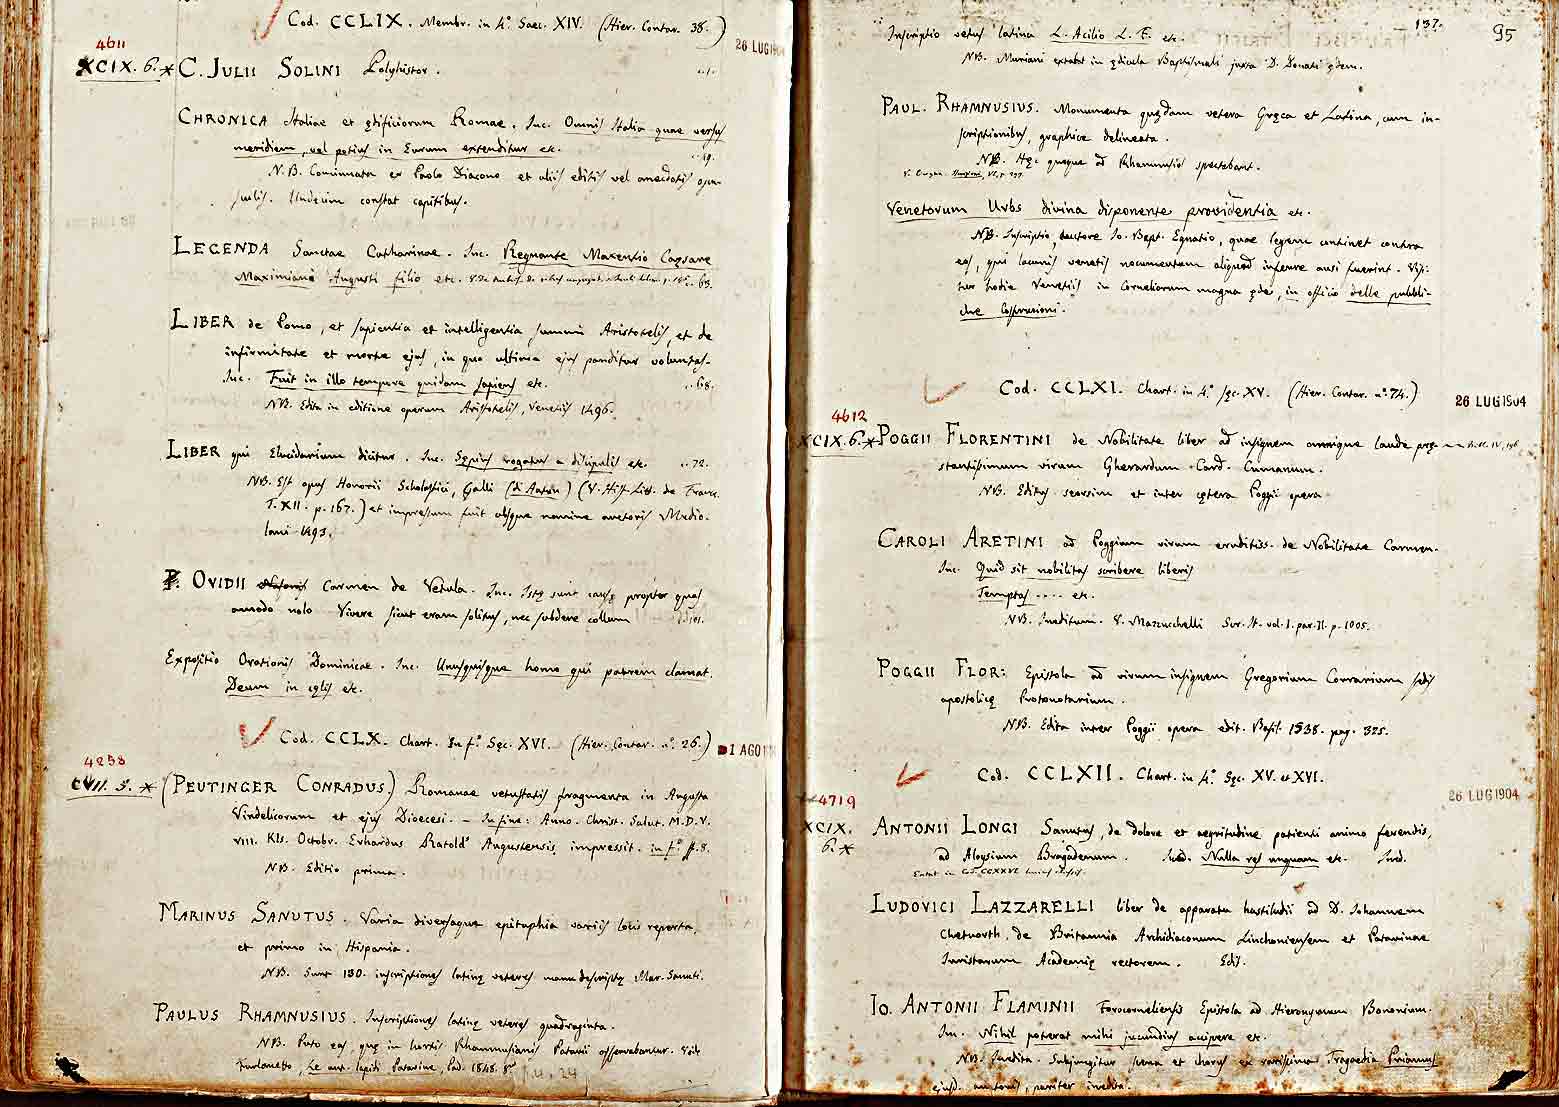 Cod. CCLIX. Membr. in 4.° Saec. XIV. (Hier. Contar. 38.)
26 LUG 190
4611
XCIX. 6. * C. JULII SOLINI Polyhistor. ..1.
CHRONICA Italiae et ędificiorum Romae. Inc. Omnis Italia quae versus
meridiem, vel potius in Eurum extenditur etc. ..49.
N.B. Concinnata ex Paolo Diacono et aliis editis vel anecdotis opu-
sculis. Undecim constat capitibus.
LEGENDA Sanctae Catharinae. Inc. Regnante Maxentio Cęsare
Maximiani Augusti filio etc. 63.
LIBER de Pomo, et sapientia et intelligentia summi Aristotelis, et de
infirmitate et morte ejus, in quo ultima ejus panditur voluntas.
Inc. Fuit in illo tempore quidam sapiens etc. ..68.
NB. Edita in editione operum Aristotelis, Venetiis 1496.
LIBER qui Elucidarium dicitur. Inc. Sępius rogatus a discipulis etc. ..72.
NB. Est opus Honorii Scholastici, Galli (di Autun) (V. Hist. Litt. de France
T. XII. p. 167.) et impressum fuit absque nomine auctoris Medio-
lani 1493.
P. OVIDII Nasonis Carmen de Vetula. Inc. Istę sunt causę propter quas
amodo nolo Vivere sicut eram solitus, nec subdere collum ..101.
Expositio Orationis Dominicae. Inc. Unusquisque homo qui patrem clamat
Deum in cęlis etc.
Cod. CCLX. Chart. in f.° Sęc. XVI. (Hier. Contar. n.° 26.)
1 AGO 1
4258
CVII. 5. * (PEUTINGER CONRADUS) Romanae vetustatis fragmenta in Augusta
Vindelicorum et ejus Dioecesi. – In fine: Anno. Christ. Salut. M.D.V.
VIII. Kls. Octobr. Erhardus Ratoldº Augustensis impressit. in f.° ff. 8.
NB. Editio prima.
MARINUS SANUTUS. Varia diversaque epitaphia variis locis reperta,
et primo in Hispania.
NB. Sunt 130. inscriptiones latinę veteres manu descriptę Mar. Sanuti.
PAULUS RHAMNUSIUS. Inscriptiones latinę veteres quadraginta.
NB. Puto eas quę in hortis Rhamnusianis Patavii asservabantur. Vide
Furlanetto, Le ant. lapidi Patavine, Pad. 1848. 8.°
137.
95
Inscriptio vetus latina L. Acilio L. F. etc.
NB. Muriani extabat in ędicula Baptismali juxta D. Donati ędem.
PAUL. RHAMNUSIUS. Monumenta quędam vetera Gręca et Latina, cum in-
scriptionibus, graphice delineata.
NB. Hęc quoque ad Rhamnusios spectabant.
Venetorum Urbs divina disponente providentia etc.
NB. Inscriptio, auctore Io. Bapt. Egnatio, quae legem continet contra
eos, qui lacunis venetis nocumentum aliquod inferre ausi fuerint. Visi-
tur hodie Venetiis in Corneliorum magna ęde, in officio delle pubbli-
che Costruzioni.
Cod. CCLXI. Chart. in 4.° sęc. XV. (Hier. Contar. n.° 74.)
26 LUG 1904
4612
XCIX. 6. * POGGII FLORENTINI de Nobilitate liber ad insignem omnique laude pręs-
stantissimum virum Gherardum Card. Cumanum.
NB. Editus seorsim et inter cętera Poggii opera.
CAROLI ARETINI ad Poggium virum eruditiss. de Nobilitate Carmen.
Inc. Quid sit nobilitas scribere liberis
Temptas .... etc.
NB. Ineditum. V. Mazzuchelli Scr. It. vol. I. par. II. p. 1005.
POGGII FLOR: Epistola ad virum insignem Gregorium Corrarium sedis
apostolicę Protonotarium.
NB. Edita inter Poggii opera edit. Basil. 1538. pag. 325.
Cod. CCLXII. Chart. in 4.° Sęc. XV. et XVI.
26 LUG 1904
4719
XCIX.
6. *
ANTONII LONGI Sanutus, de dolore et aegritudine patienti animo ferendis,
ad Aloysium Bragadenum. Ined. Nulla res unquam etc. Ined.
LUDOVICI LAZZARELLI liber de apparatu hastiludii ad D. Iohannem
Chetworth, de Britannia Archidiaconum Linchoniensem et Patavinae
Juristarum Academię rectorem. Edis.
IO. ANTONII FLAMINII Forocorneliensis Epistola ad Hieronymum Bononium.
Inc. Nihil poterat mihi jucundius accipere etc.
NB. Inedita. Subjungitur scena et chorus ex rarissima Tragaedia Priamus
ejusd. auctoris, pariter inedita.